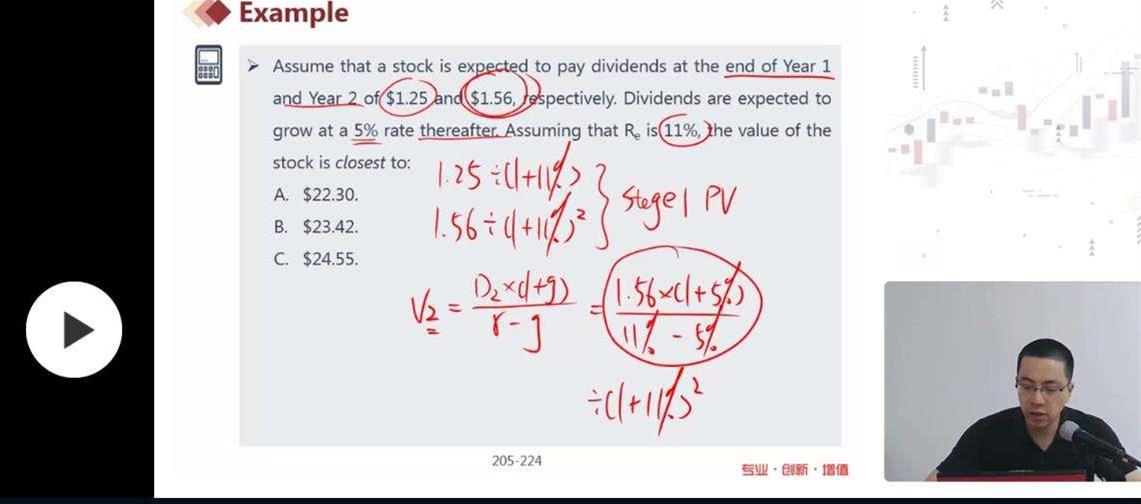 Example
➢ Assume that a stock is expected to pay dividends at the end of Year 1
and Year 2 of $1.25 and $1.56, respectively. Dividends are expected to
grow at a 5% rate thereafter. Assuming that Re is 11%, the value of the
stock is closest to:
A. $22.30.
B. $23.42.
C. $24.55.
1.25÷(1+11%)
1.56÷(1+11%)² } Stage 1 PV
V2 = D2×(1+g) / r-g = 1.56×(1+5%) / 11% - 5%
÷(1+11%)²
205-224
专业·创新·增值